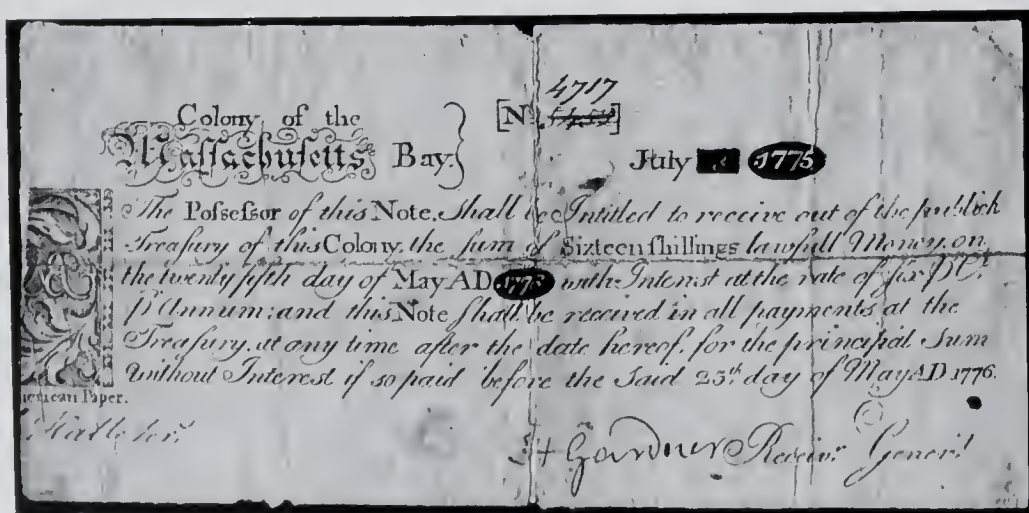 4717
Colony of the
[N ]
Maſſachuſetts Bay.
July 1775
The Poſseſsor of this Note, Shall be Intitled to receive out of the publick
Treaſury of this Colony, the ſum of Sizteen ſhillings lawfull Money, on
the twenty fifth day of May AD with Intereſt at the rate of ſix P Ct
P Annum: and this Note Shall be received in all payments at the
Treaſury, at any time after the date hereof, for the principal Sum
Without Intereſt if so paid before the Said 25th day of May AD 1776.
merican Paper.
H Gardner Receivr Generl